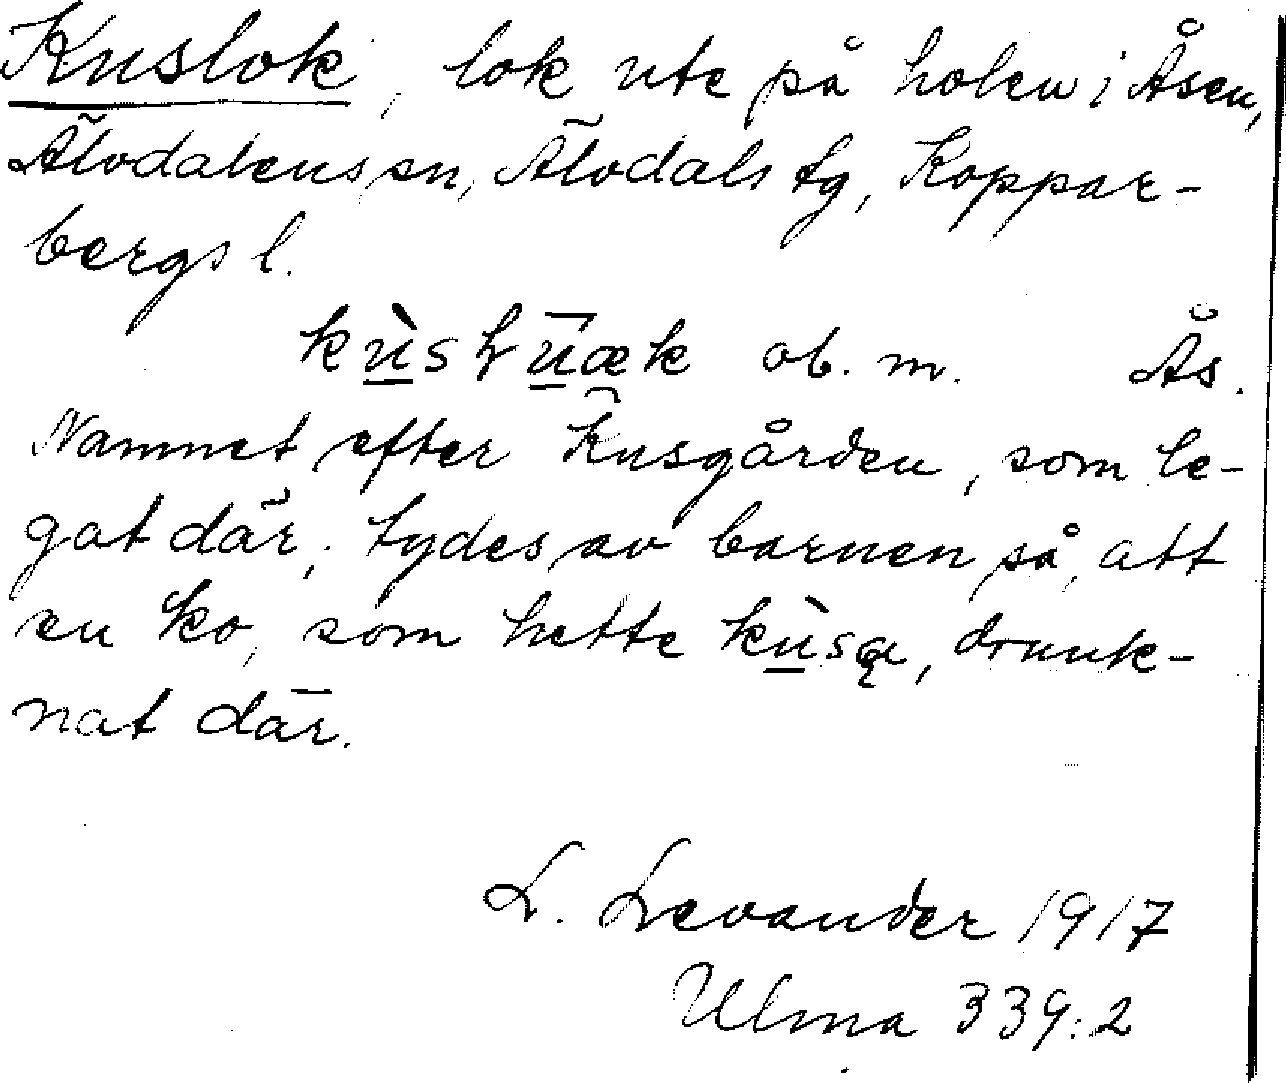 Kuslok, lok ute på holen i Åsen,
Älvdalens sn, Älvdals tg, Koppar-
bergs l.
kùsłūæk ob. m. Ås.
Namnet efter Kusgården, som le-
gat där; tydes av barnen så, att
en ko, som hette kùsą, drunk-
nat där.
L. Levander 1917
Ulma 339:2